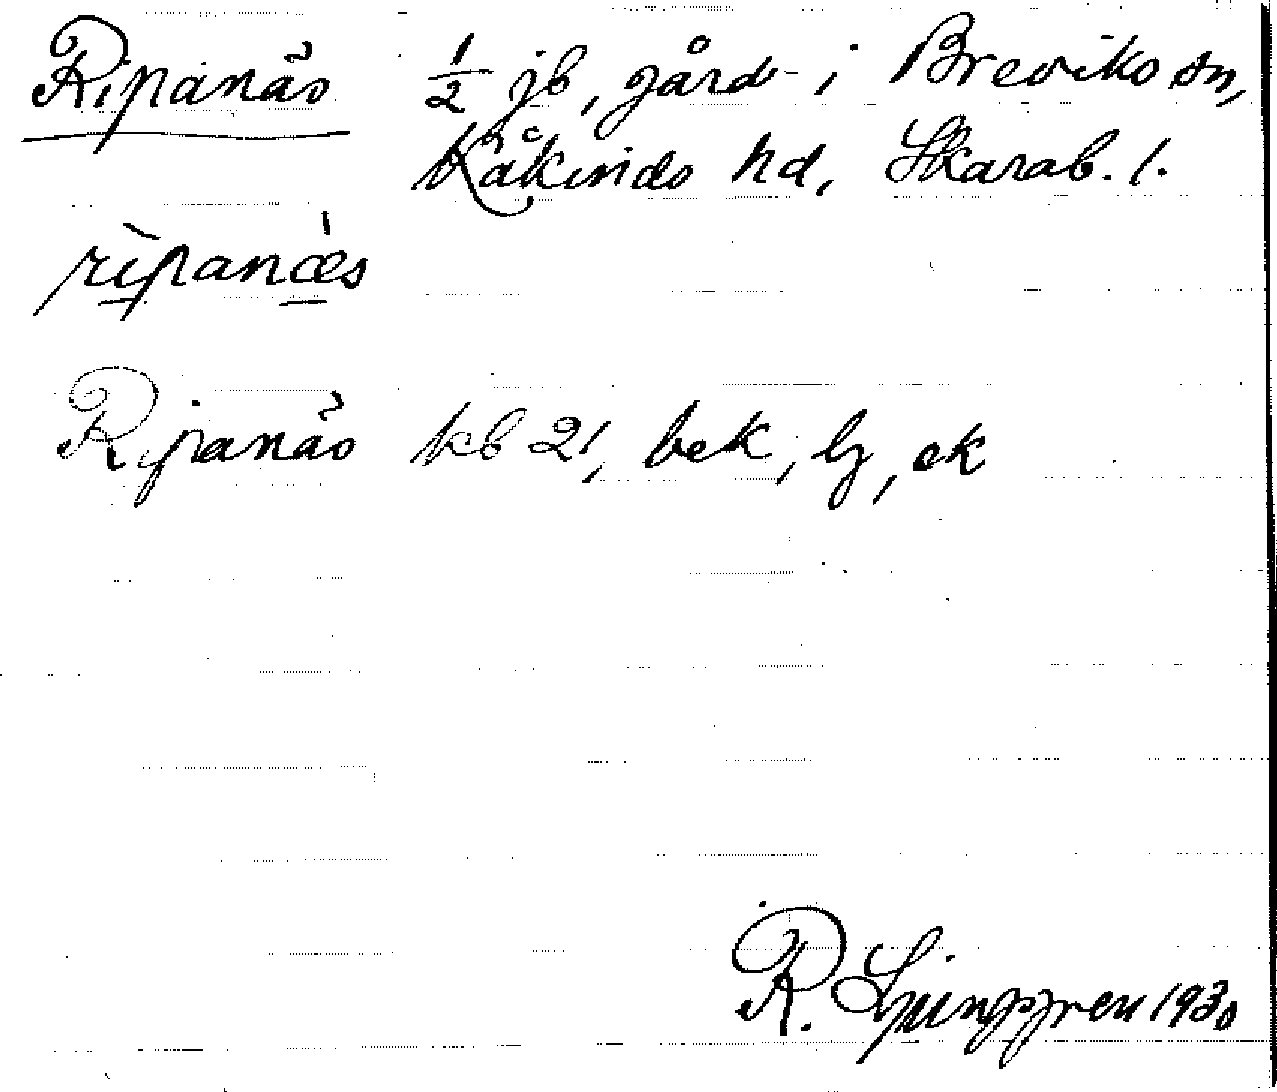 Ripanäs 1/2 jb, gård i Breviks sn,
Kåkinds hd, Skarab. l.
rìpanæ̀s
Ripanäs kb 21, bek, lz, ek
R. Ljunggren 1930